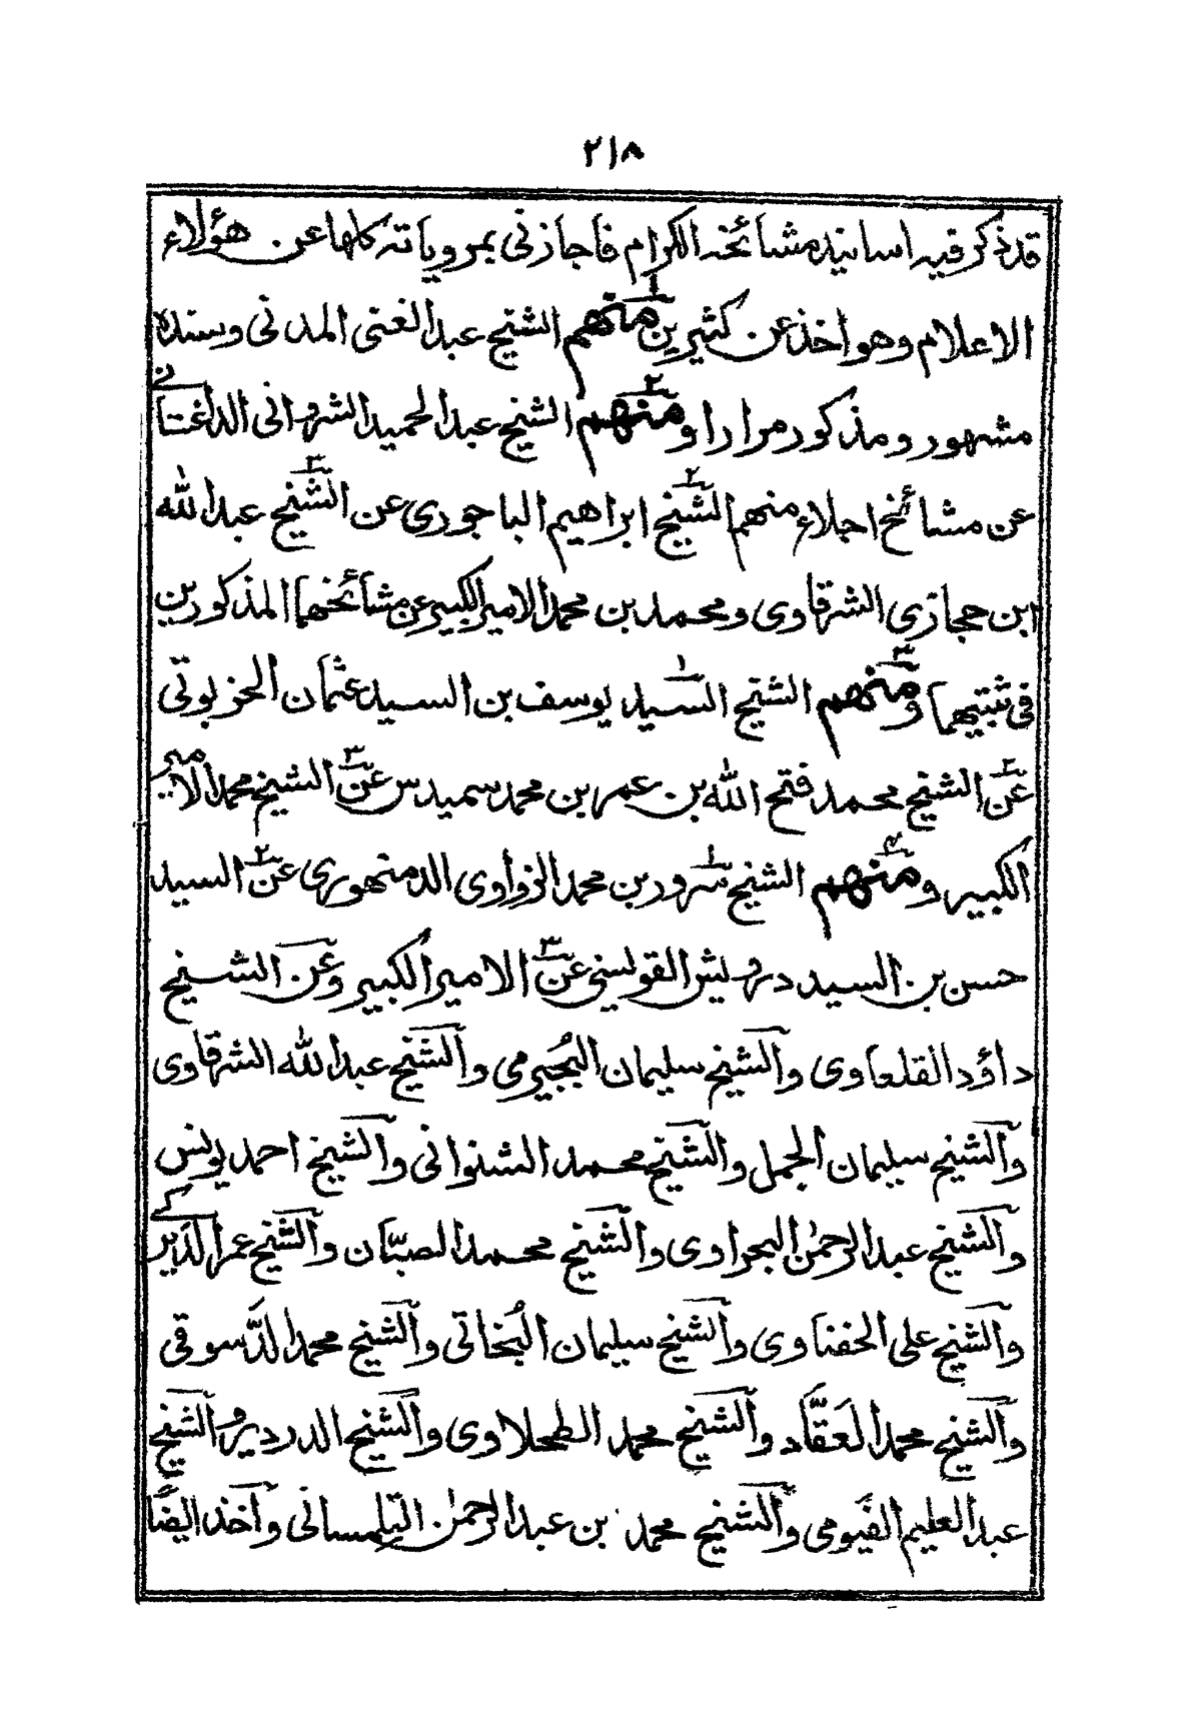 ٢١٨
قد ذكر فيه اسانيد مشائخه الكرام فاجازنى بمروياته كلها عن هؤلاء
الاعلام وهو اخذ عن كثيرين منهم الشيخ عبد الغنى المدنى وسنده
مشهور ومذكور مرارا ومنهم الشيخ عبد الحميد الشروانى الداغستانى
عن مشائخ اجلاء منهم الشيخ ابراهيم الباجورى عن الشيخ عبد الله
ابن حجازى الشرقاوى ومحمد بن محمد الامير الكبير عن مشائخهما المذكورين
فى ثبتيهما ومنهم الشيخ السيد يوسف بن السيد عثمان الخربوتى
عن الشيخ محمد فتح الله بن عمر بن محمد سميدس عن الشيخ محمد الامير
الكبير ومنهم الشيخ سرور بن محمد الزواوى الدمنهورى عن السيد
حسن بن السيد درويش القويسنى عن الامير الكبير وعن الشيخ
داؤد القلعاوى والشيخ سليمان البُجيرمى والشيخ عبد الله الشرقاوى
والشيخ سليمان الجمل والشيخ محمد الشنوانى والشيخ احمد يونس
والشيخ عبد الرحمٰن البحراوى والشيخ محمد الصبّان والشيخ عمر الديركى
والشيخ على الحفناوى والشيخ سليمان البُخاتى والشيخ محمد الدَّسوقى
والشيخ محمد العَقَّاد والشيخ محمد الطحلاوى والشيخ الدردير والشيخ
عبد العليم الفَيومى والشيخ محمد بن عبد الرحمٰن التِلِمسانى وآخذ ايضًا